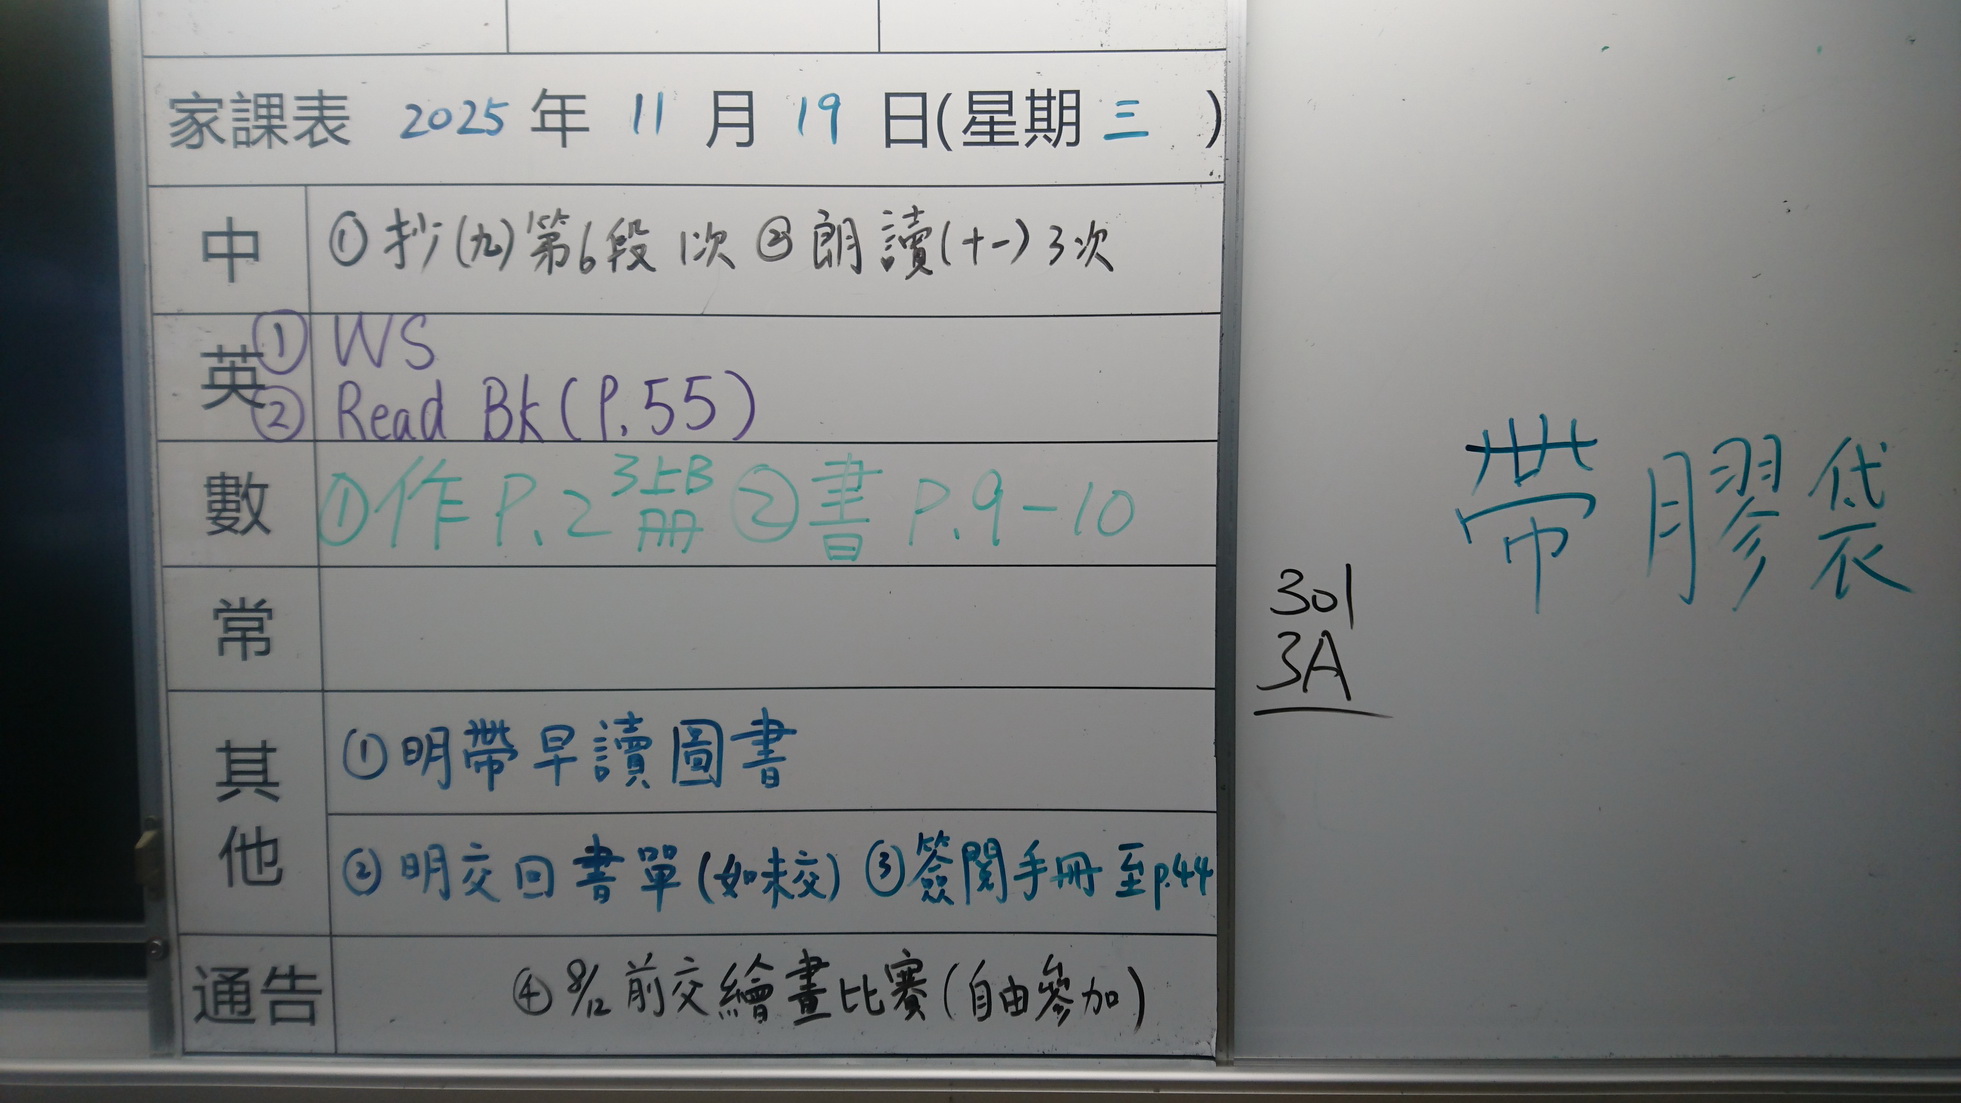 家課表 2025 年 11 月 19 日(星期 三 )
中 ①抄(九)第6段1次 ②朗讀(十一)3次
英 ① WS
② Read Bk(P.55)
數 ①作 P.2 3上B冊 ②書 P.9-10
常
其他 ①明帶早讀圖書
②明交回書單(如未交) ③簽閱手冊至p.44
通告 ④8/12前交繪畫比賽(自由參加)
帶膠袋
301
3A